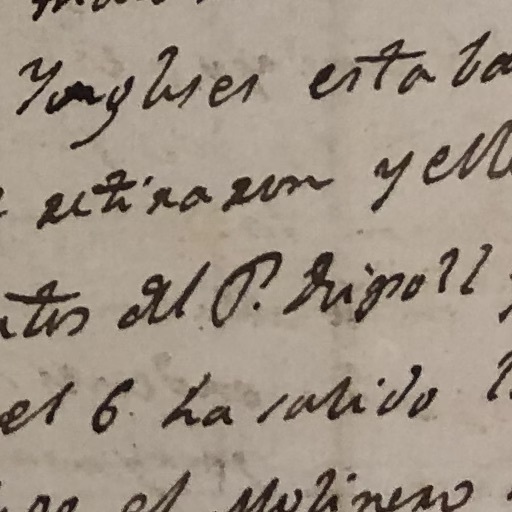 Yngleses estaba
retiraron y el
del P. Ripoll
el 6 ha salido
el Molinero